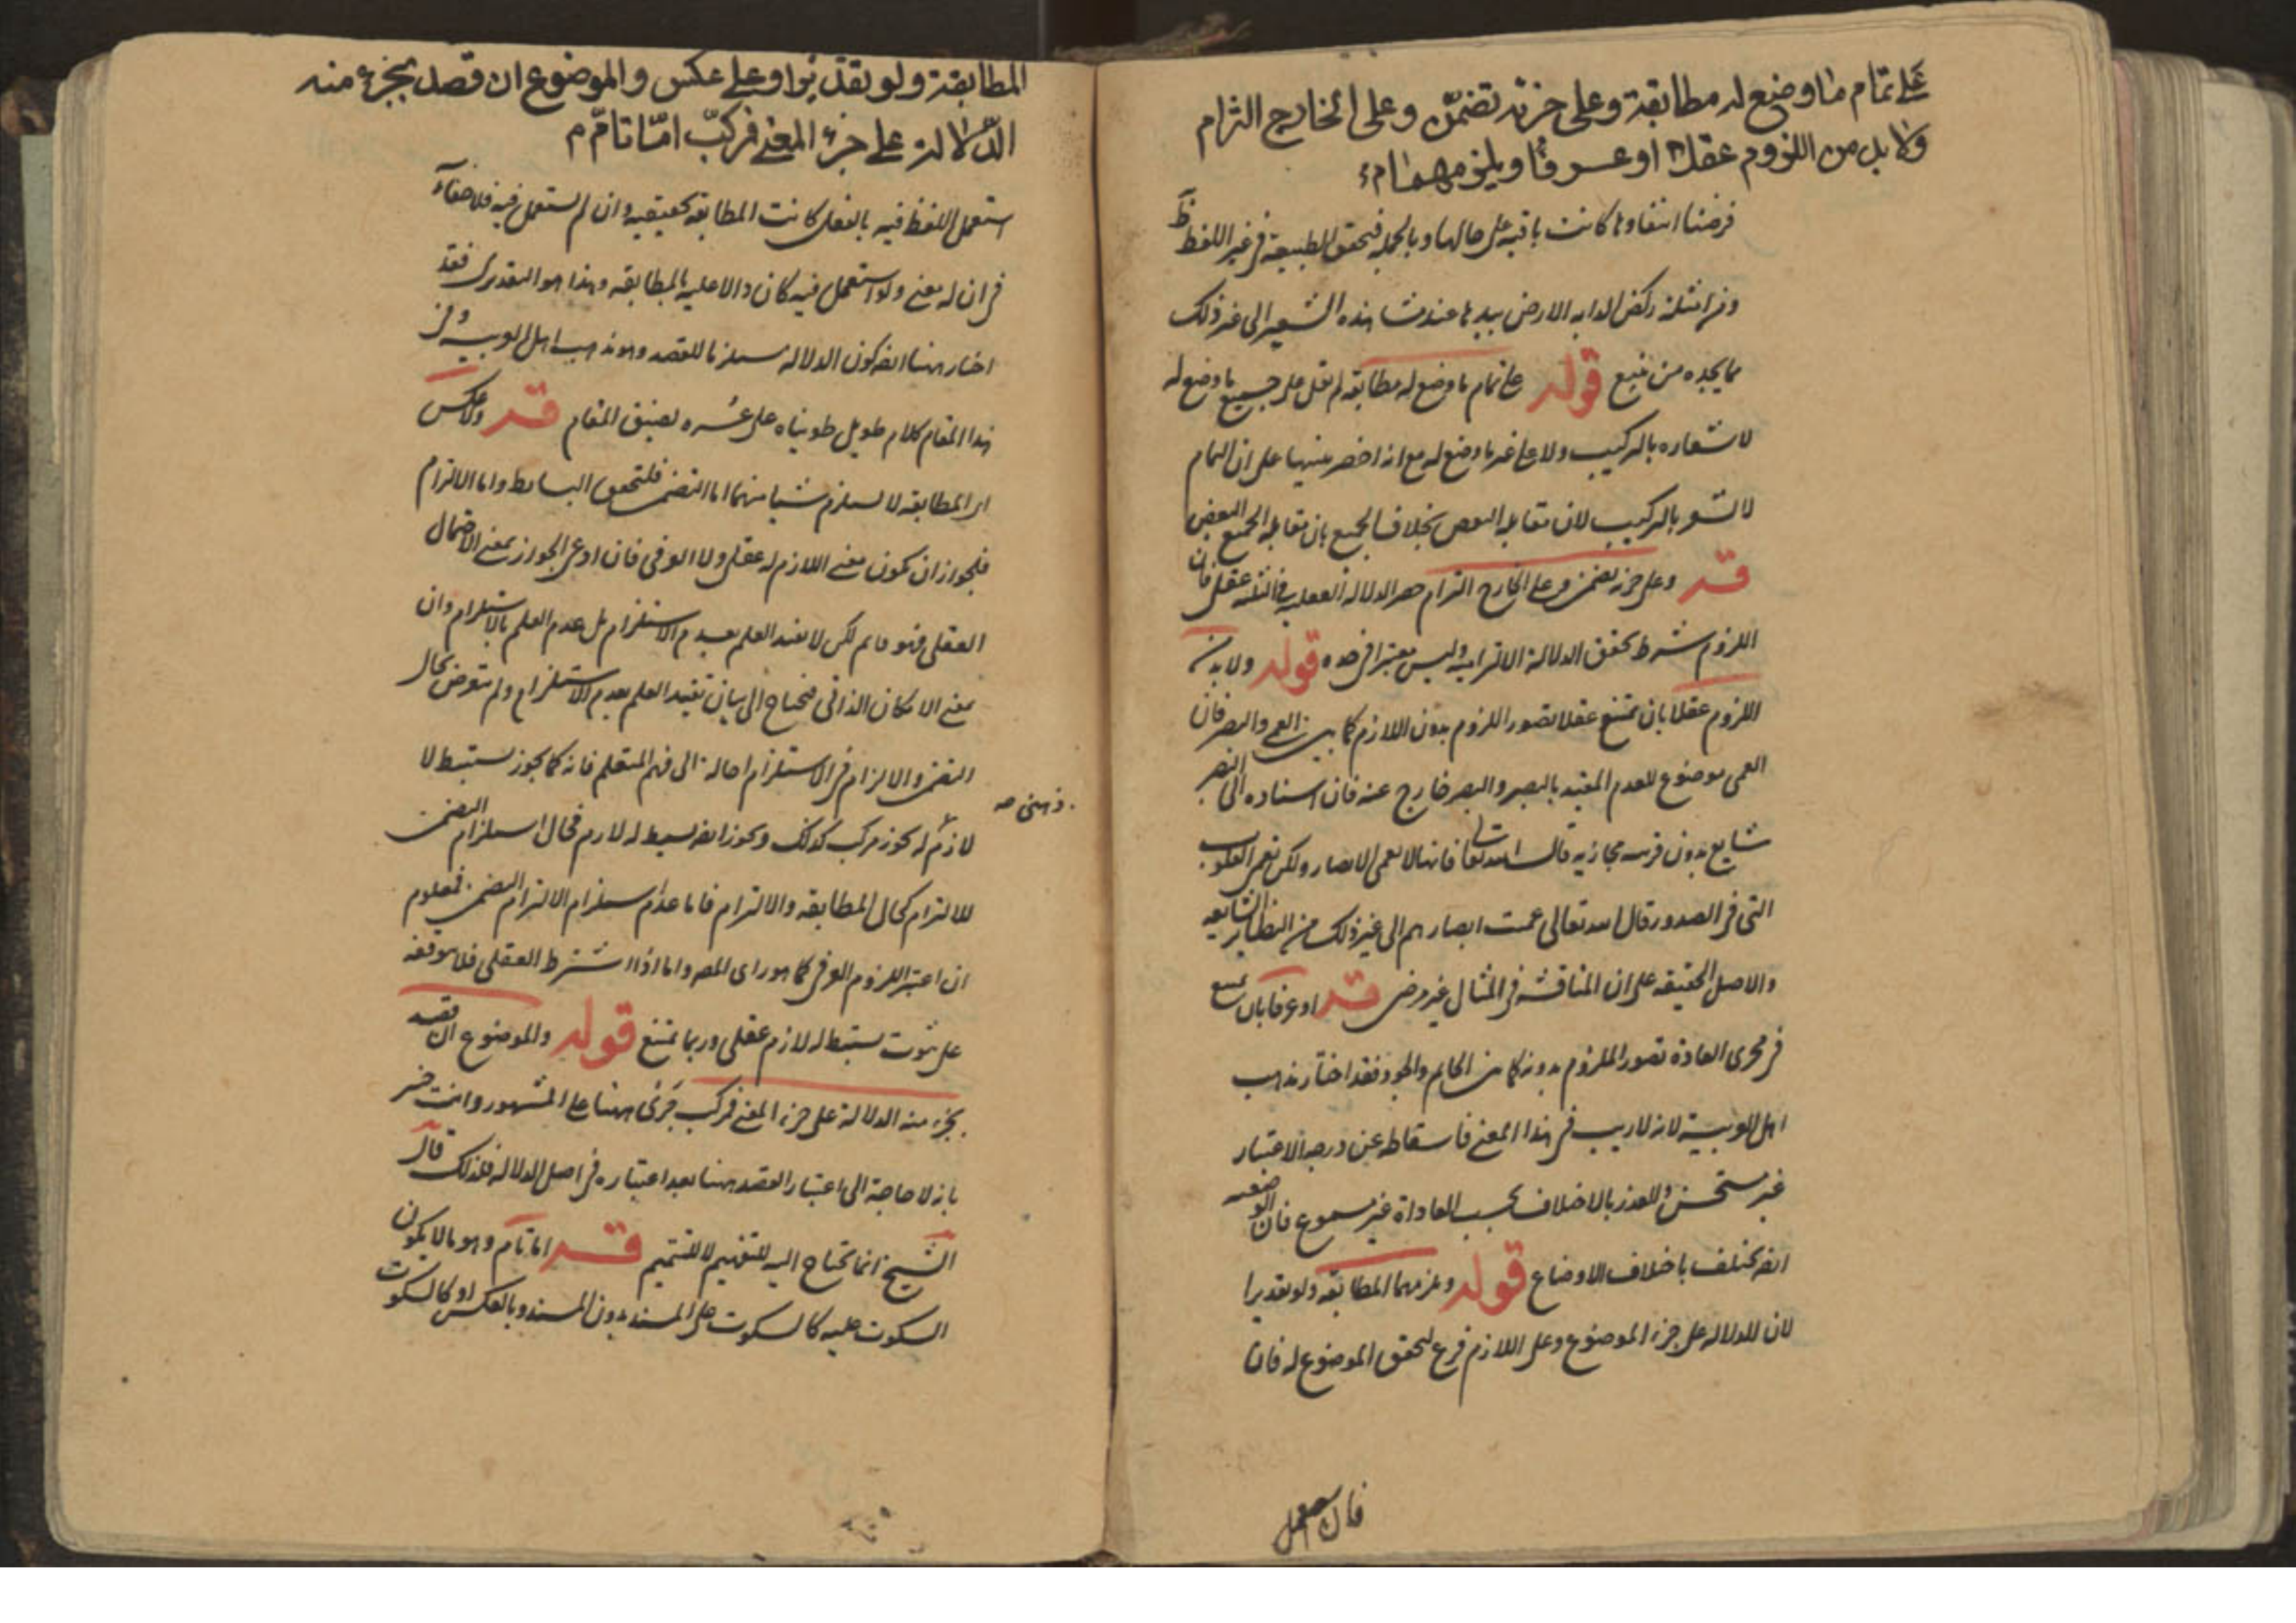 على تمام ما وضع له مطابقة وعلى جزئه تضمّن وعلى الخارج التزام
ولا بد من اللزوم عقلا او عرفا ويلزمهما م
فرضنا انتفاءها كانت باقية على حالها وبالجملة فتحقق الطبيعة في غير اللفظ
ومن امثلته ركض الدابه الارض بيدها عند مشاهدة الشعير الى غير ذلك
مما يجده من تتبع قوله على تمام ما وضع له مطابقه لم يقل على جميع ما وضع له
لاشعاره بالتركيب ولا على ما وضع له مع انه اخصر تنبيها على ان التمام
لا يشعر بالتركيب لان مقابله النقص بخلاف الجميع فان مقابله الجميع البعض
قد وعلى جزئه تضمن وعلى الخارج التزام حصر الدلاله في الثلثه عقلى فان
اللزوم شرط تحقق الدلالة الالتزاميه وليس معتبرا فى حده قوله ولا بد من
اللزوم عقلا بان يمتنع عقلا تصور الملزوم بدون اللازم كما بين العمى والبصر فان
العمى موضوع للعدم المقيد بالبصر والبصر خارج عنه فان اسناده الى البصر
شايع بدون قرينه مجازيه قال الله تعا فانها لا تعمى الابصار ولكن تعمى القلوب
التى فى الصدور وقال الله تعالى عميت ابصارهم الى غير ذلك من النظاير الشايعه
والاصل الحقيقه على ان المناقشه فى المثال غير مرضى قد او عرفا بان يمتنع
فى مجرى العادة تصور الملزوم بدونه كما بين الحاتم والجود فقد اختار مذهب
اهل العربية لانه لا ريب فى هذا المعنى فاسقاطه عن درجه الاعتبار
غير مستحسن والعذر بالاختلاف بحسب العادات غير مسموع فان الوضعيه
ايضا تختلف باختلاف الاوضاع قوله ويلزمهما المطابقه ولو تقديرا
لان الدلاله على جزء الموضوع وعلى اللازم فرع تحقق الموضوع له فان
فان استعمل
المطابقة ولو تقديرا ولا عكس والموضوع ان قصد بجزء منه
الدّلالة على جزء المعنى فمركبّ امّا تامّ م
استعمل اللفظ فيه بالفعل كانت المطابقه تحقيقيه وان لم يستعمل فيه فلا خفاء
فى ان له معنى ولو استعمل فيه كان دالا عليه بالمطابقه وهذا هو التقديرى فقد
اختار ههنا ايضا كون الدلاله مستلزما للقصد وهو مذهب اهل العربيه وفى
هذا المقام كلام طويل طويناه على غره لضيق المقام قد ولا عكس
اى المطابقه لا يستلزم شيا منهما اما التضمن فلتحقق البسايط واما الالتزام
فلجواز ان يكون معنى لا لازم له عقلى ولا العرفى فان ادعى الجواز بمعنى الاحتمال
العقلى فهو قايم لكن لا يفيد العلم بعدم الاستلزام بل عدم العلم بالاستلزام وان
بمعنى الامكان الذاتى فيحتاج الى بيان يفيد العلم بعدم الاستلزام ولم يتعرض بحال
التضمن والالتزام فى الاستلزام احالة الى فهم المتعلم فانه كما يجوز بسيط لا
ذهنى صح
لازم له يجوز مركب كذلك ويجوز ايضا بسيط له لازم فحال استلزام التضمن
للالتزام كحال المطابقه والالتزام فاما عدم استلزام الالتزام التضمن فمعلوم
ان اعتبر اللزوم العرفى كما هو راى المصـ واما اذا اشترط العقلى فلا يتوقف
على ثبوت بسيط له لازم عقلى وربما يمنع قوله والموضوع ان قصد
بجزء منه الدلالة على جزء المعنى فمركب جرى ههنا على المشهور وانت خبير
بانه لا حاجة الى اعتبار القصد ههنا بعد اعتباره فى اصل الدلاله فلذلك قال
الشيخ انما يحتاج اليه للتفهيم لا للتتميم قد اما تام وهو ما لا يكون
السكوت عليه كالسكوت على المسند بدون المسند وبالعكس او كالسكوت